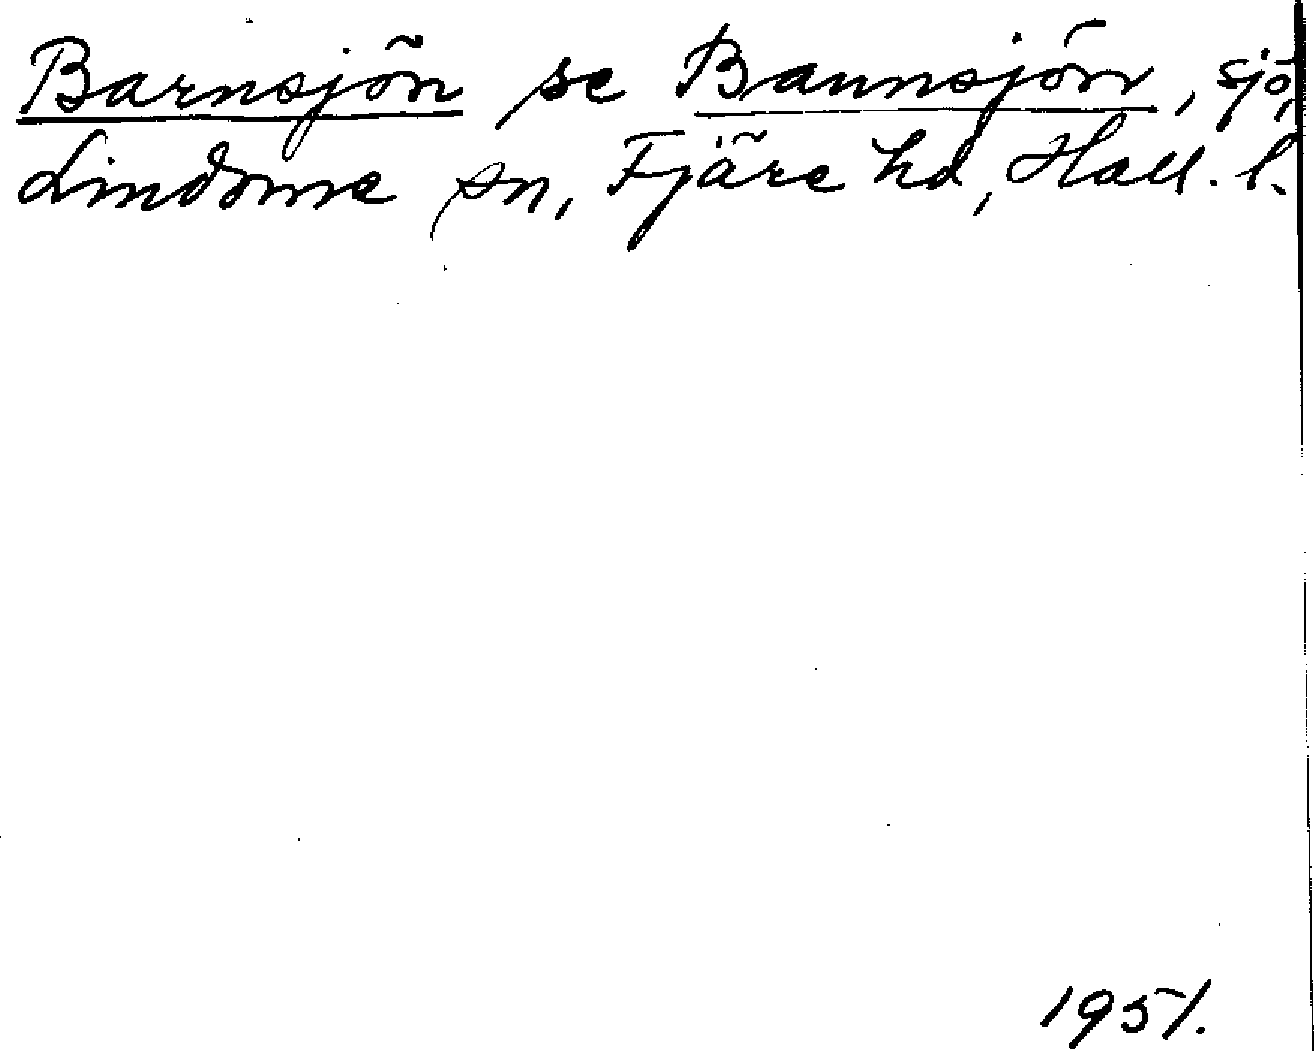 Barnsjön se Bannsjön, sjö,
Lindome sn, Fjäre hd, Hall. l.
1951.